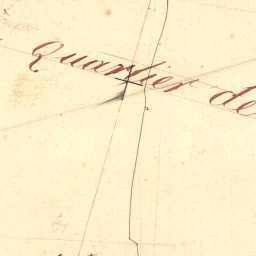 Quartier de